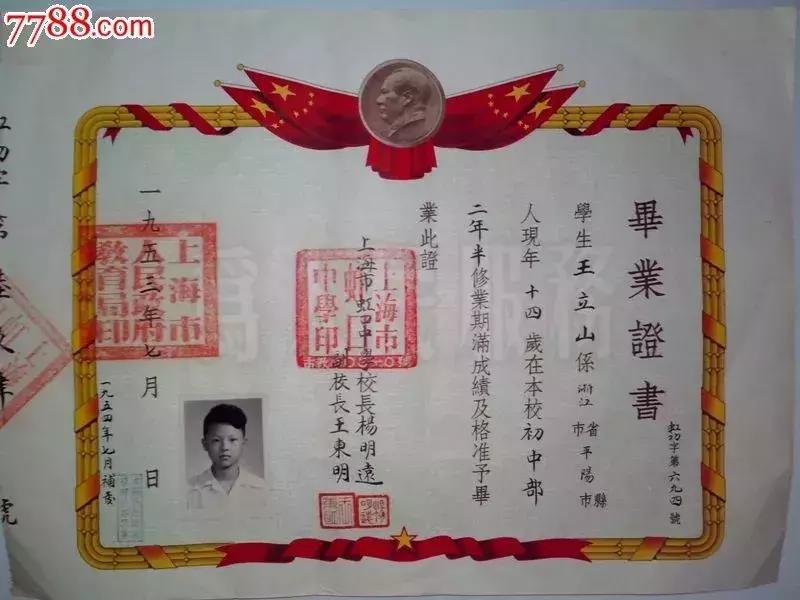 7788.com
畢業證書
虹初字第六九四號
學生王立山係浙江省平陽縣
市 市
人現年十四歲在本校初中部
二年半修業期滿成績及格准予畢
業此證
上海市虹口中學校長楊明遠
副校長王東明
上海市虹口中學印
一九五三年七月 日
上海市人民政府教育局印
一九五四年七月補發
為人民服務